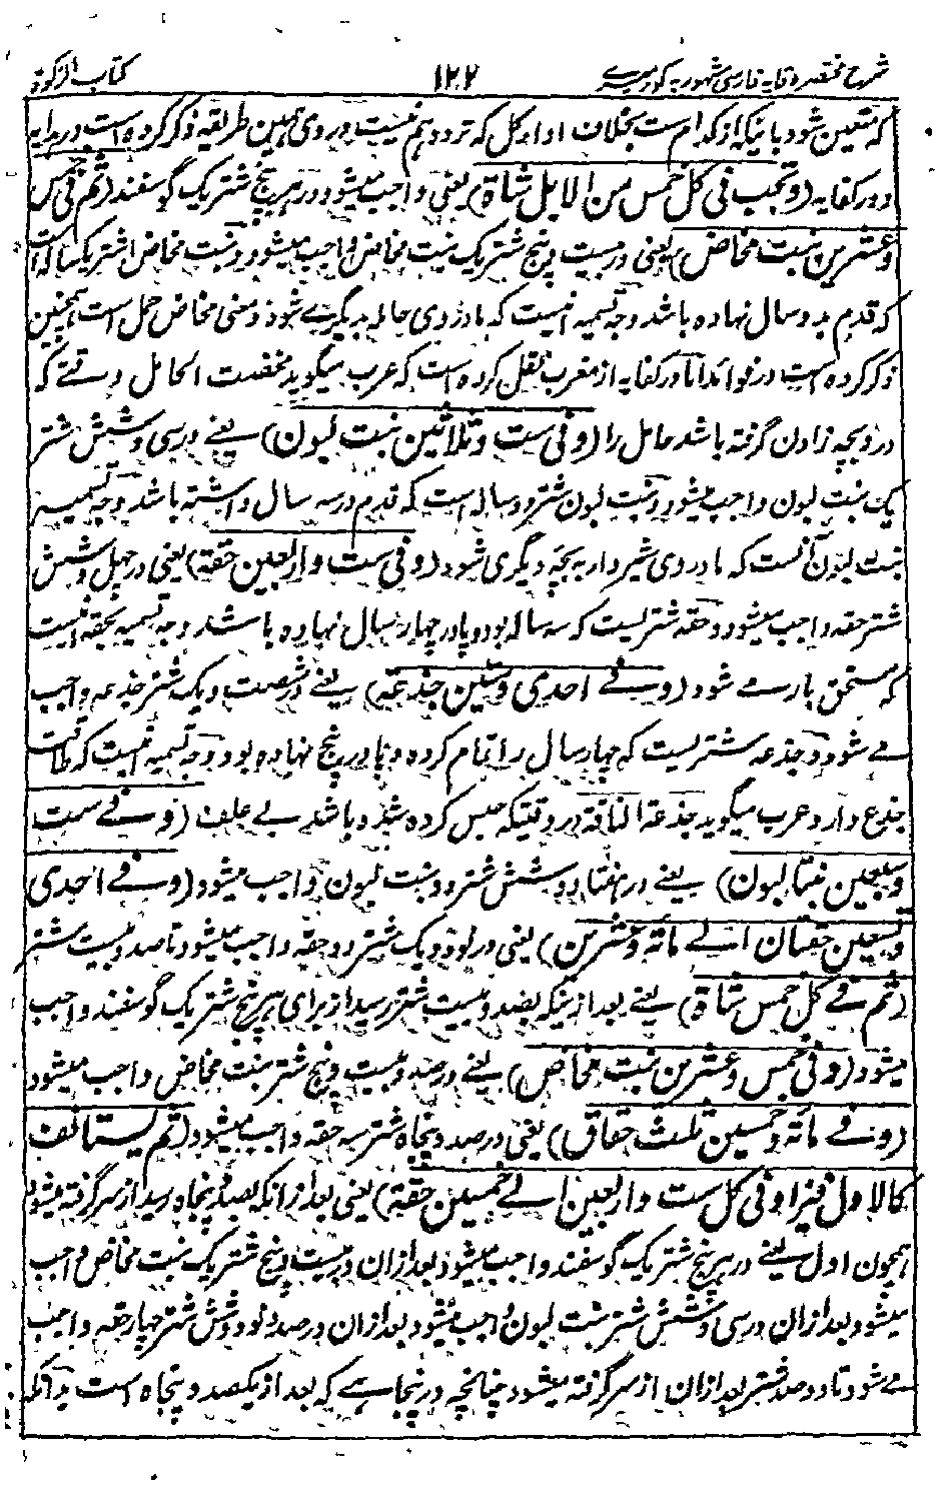 شرح مختصر وقایه فارسی مشهور به کور میری ۱۲۲ کتاب الزکوة
که متعین شود با نیکه از کدام است بخلاف اداء کل که تردد هم نیست و در وی همین طریقه ذکر کرده است در هدایه
و در کفایه (وتجب فی کل خمس من الابل شاة) یعنی واجب میشود در هر پنج شتر یک گوسفند (ثم فی خمس
وعشرین بنت مخاض) یعنی در بیست و پنج شتر یک بنت مخاض واجب میشود و بنت مخاض اشتر یکساله است
که قدم بدو سال نهاده باشد وجه تسمیه انیست که مادر وی حامله بدیگرے شود و معنی مخاض حمل است همچنین
ذکر کرده است در فوائد اما در کفایه از مغرب نقل کرده است که عرب میگوید مخضت الحامل وقتے که
درد بچه زادن گرفته باشد حامل را (وفی ست وثلاثین بنت لبون) یعنے در سی و شش شتر
یک بنت لبون واجب میشود و بنت لبون شتر دو ساله است که قدم در سه سال داشته باشد وجه تسمیه
بنت لبون آنست که مادر وی شیردار به بچه دیگری شود (وفی ست واربعین حقة) یعنی در چهل و شش
شتر حقه واجب میشود و حقه شتریست که سه ساله بود و پا در چهار سال نهاده باشد وجه تسمیه بحقه انیست
که مستحق بار مے شود (وفے احدی وستین جذعة) یعنے در شصت و یک شتر جذعه واجب
مے شود و جذعه شتریست که چهار سال را تمام کرده و پا در پنج نهاده بود وجه تسمیه انیست که طاقت
جذع دارد عرب میگوید جذعة الناقة در وقتیکه حبس کرده شود و باشد بے علف (وفے ست
وسبعین بنتا لبون) یعنے در هفتاد و شش شتر دو بنت لبون واجب میشود (وفے احدی
وتسعین حقتان الے مائة وعشرین) یعنی در نود و یک شتر دو حقه واجب میشود تا صد و بیست شتر
(ثم فے کل خمس شاة) یعنے بعد از نیکه بصد و بیست شتر رسید از برای هر پنج شتر یک گوسفند واجب
میشود (وفی خمس وعشرین بنت مخاض) یعنے در صد و بیست و پنج شتر بنت مخاض واجب میشود
(وفے مائة وخمسین ثلث حقاق) یعنی در صد و پنجاه شتر سه حقه واجب میشود (ثم یستانف
کالاول فیزاد فی کل ست واربعین الے خمسین حقة) یعنی بعد از انکه بصد و پنجاه رسید از سر گرفته میشود
همچون اول یعنے در هر پنج شتر یک گوسفند واجب میشود بعد ازان در بیست و پنج شتر یک بنت مخاض واجب
میشود بعد ازان در سی و شش شتر بنت لبون واجب میشود بعد ازان در صد و نود و شش شتر چهار حقه واجب
مے شود تا دو صد شتر بعد ازان از سر گرفته میشود چنانچه در پنجاهے که بعد از یکصد و پنجاه است بدانکه